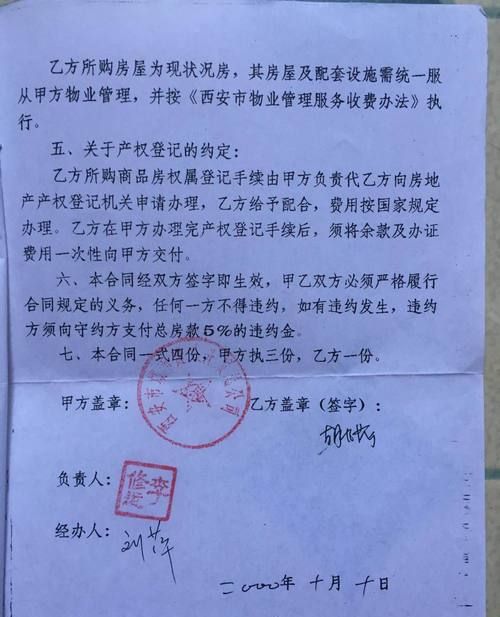 乙方所购房屋为现状况房，其房屋及配套设施需统一服
从甲方物业管理，并按《西安市物业管理服务收费办法》执
行。
五、关于产权登记的约定：
乙方所购商品房权属登记手续由甲方负责代乙方向房地
产产权登记机关申请办理，乙方给予配合，费用按国家规定
办理。乙方在甲方办理完产权登记手续后，须将余款及办证
费用一次性向甲方交付。
六、本合同经双方签字即生效，甲乙双方必须严格履行
合同规定的义务，任何一方不得违约，如有违约发生，违约
方须向守约方支付总房款5%的违约金。
七、本合同一式四份，甲方执三份，乙方一份。
甲方盖章：
乙方盖章（签字）：
西安市
公司
胡
负责人：
李
修
经办人：
刘萍
二〇〇〇年十月十日